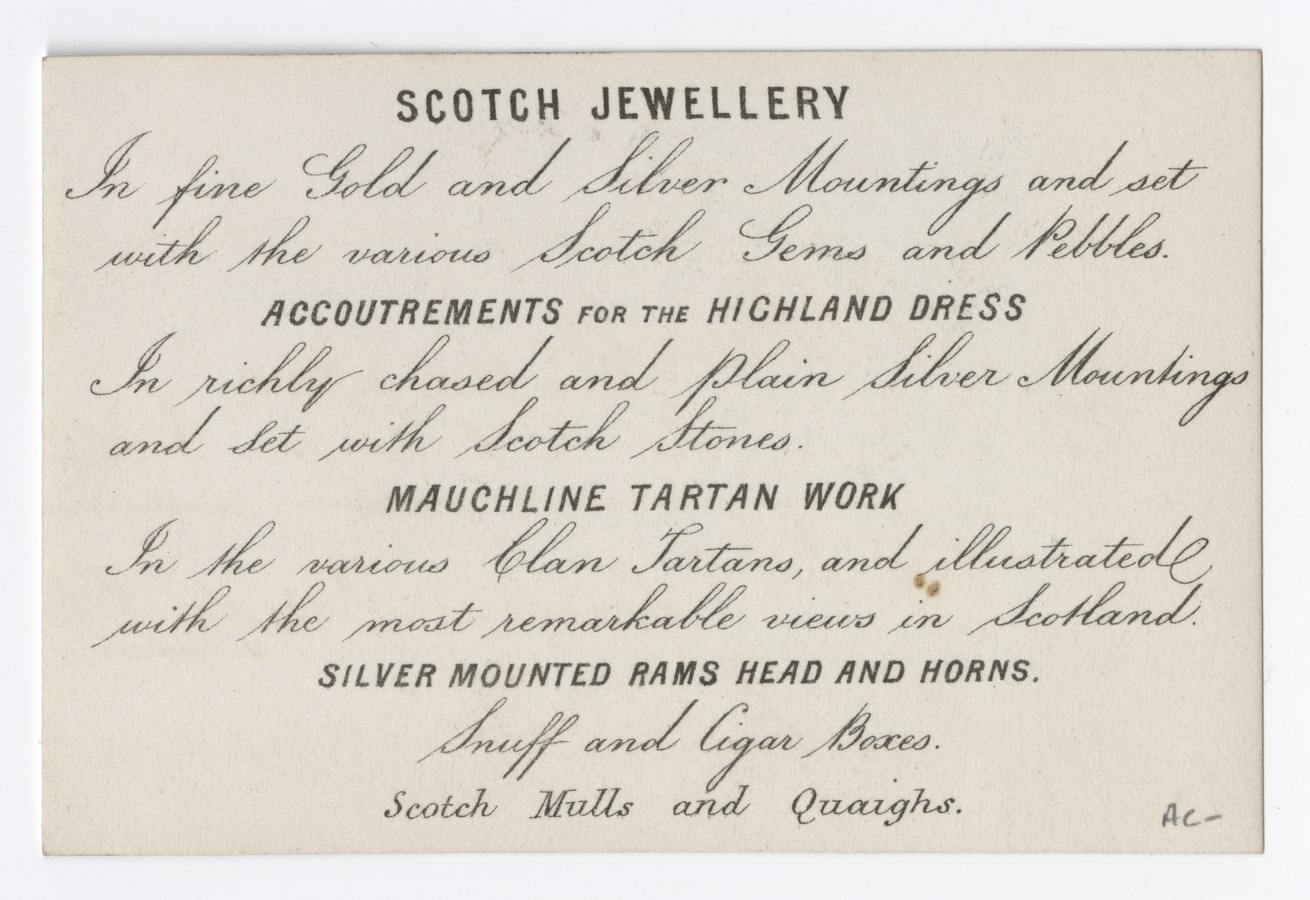 SCOTCH JEWELLERY
In fine Gold and Silver Mountings and set
with the various Scotch Gems and Pebbles.
ACCOUTREMENTS FOR THE HIGHLAND DRESS
In richly chased and plain Silver Mountings
and Set with Scotch Stones.
MAUCHLINE TARTAN WORK
In the various Clan Tartans, and illustrated
with the most remarkable views in Scotland.
SILVER MOUNTED RAMS HEAD AND HORNS.
Snuff and Cigar Boxes.
Scotch Mulls and Quaighs.
AC-